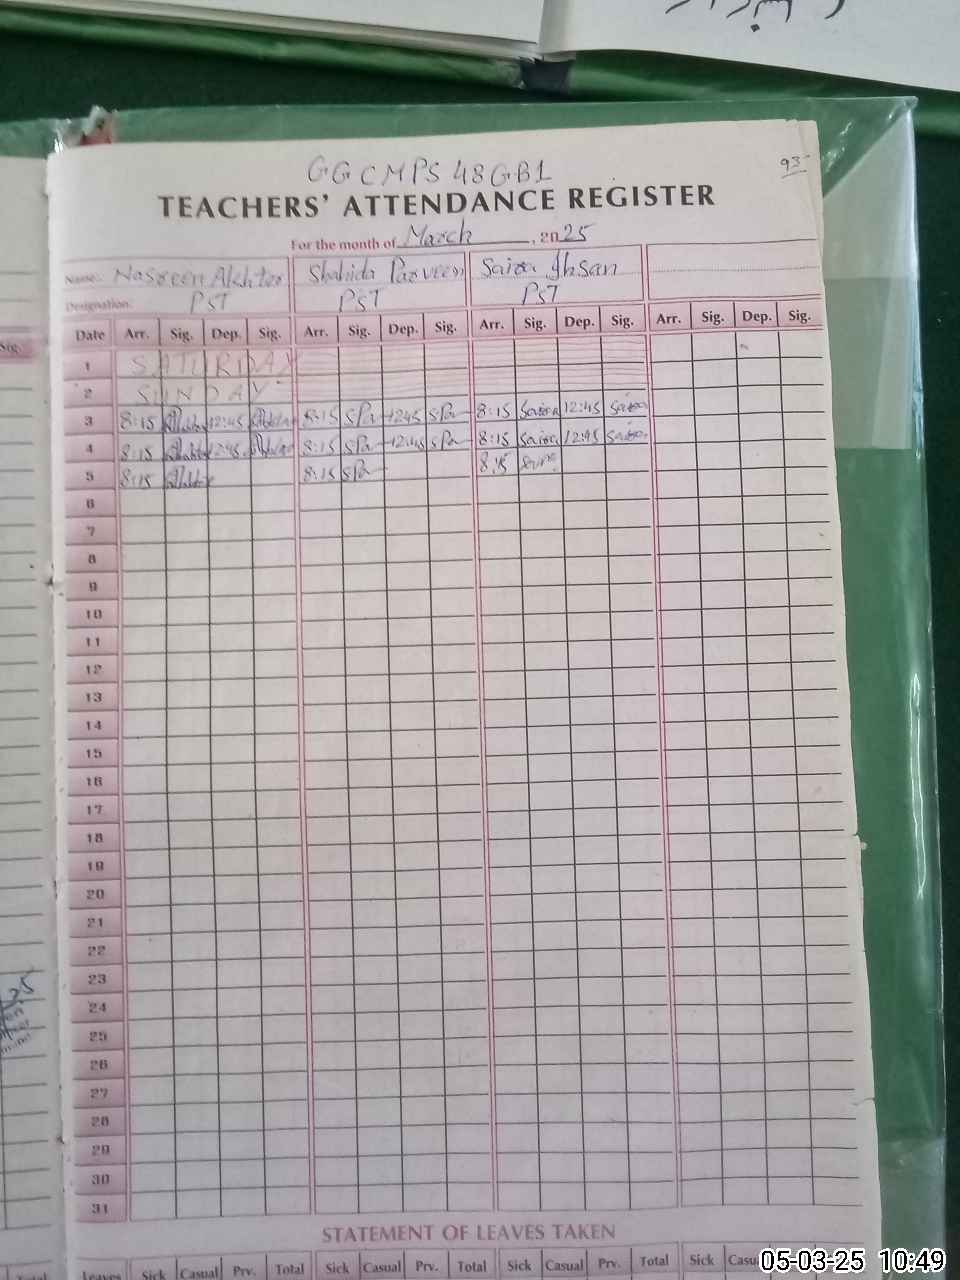 93
GGCMPS 48GB1
TEACHERS' ATTENDANCE REGISTER
For the month of March, 2025
Name: Nasreen Akhter Shahida Parveen Saira Ahsan
Designation: PST PST PST
Date Arr. Sig. Dep. Sig. Arr. Sig. Dep. Sig. Arr. Sig. Dep. Sig. Arr. Sig. Dep. Sig.
1 SATURDAY
2 SUNDAY
3 8:15 Akhter 12:45 Akhter 8:15 SPa 12:45 SPa 8:15 Saira 12:45 Saira
4 8:15 Akhter 12:45 Akhter 8:15 SPa 12:45 SPa 8:15 Saira 12:45 Saira
5 8:15 Akhter 8:15 SPa 8:15
6
7
8
9
10
11
12
13
14
15
16
17
18
19
20
21
22
23
24
25
26
27
28
29
30
31
STATEMENT OF LEAVES TAKEN
Leaves Sick Casual Prv. Total Sick Casual Prv. Total Sick Casual Prv. Total Sick
05-03-25 10:49